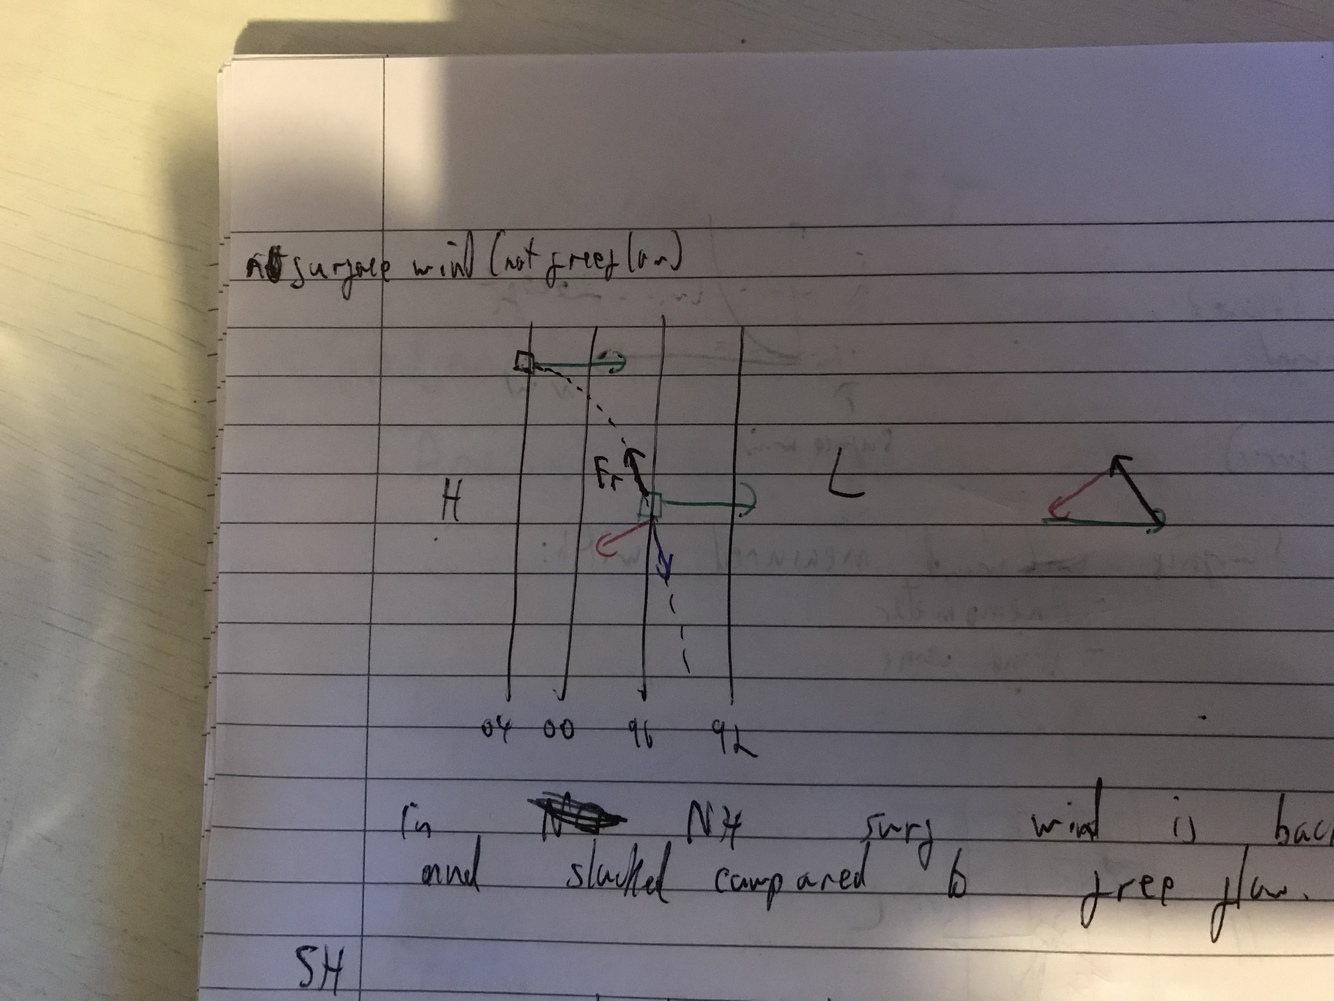 surface wind (not free flow)
Fr
H L
04 00 96 92
in NH surf wind is bac
and slacked compared to free flow.
SH